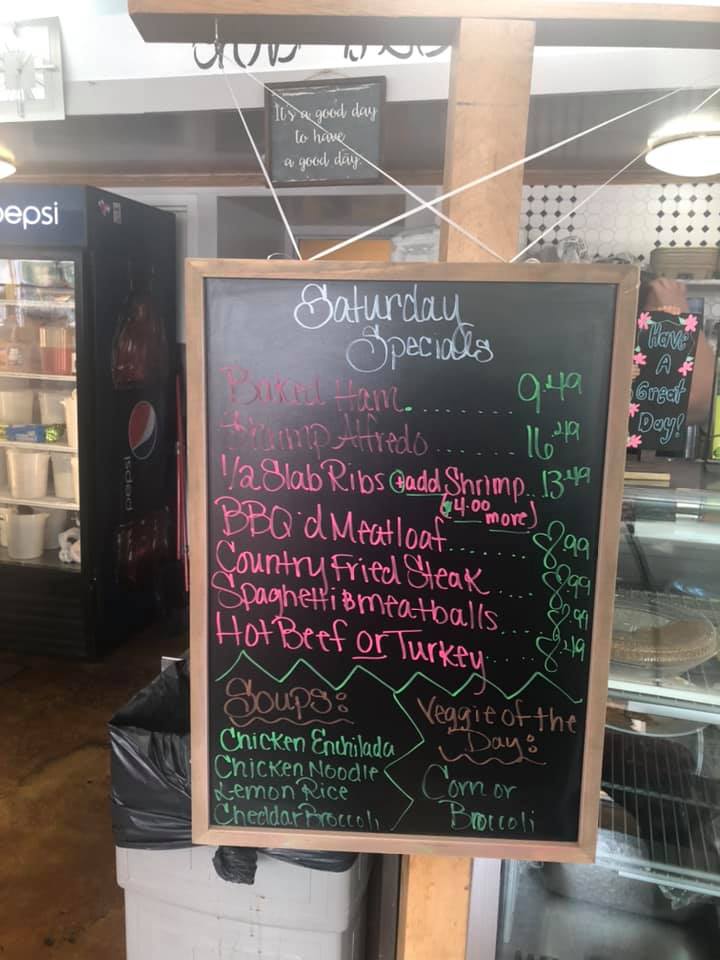 It's a good day
to have
a good day.
pepsi
Saturday
Specials
Baked Ham.......... 9.49
Shrimp Alfredo....... 16.49
1/2 Slab Ribs + add Shrimp.. 13.49
($4.00 more)
BBQ'd Meatloaf....... 8.99
Country Fried Steak.... 8.99
Spaghetti & meatballs.... 8.99
Hot Beef or Turkey...... 8.49
Soups:
Chicken Enchilada
Chicken Noodle
Lemon Rice
Cheddar Broccoli
Veggie of the
Day:
Corn or
Broccoli
Have
A
Great
Day!
pepsi